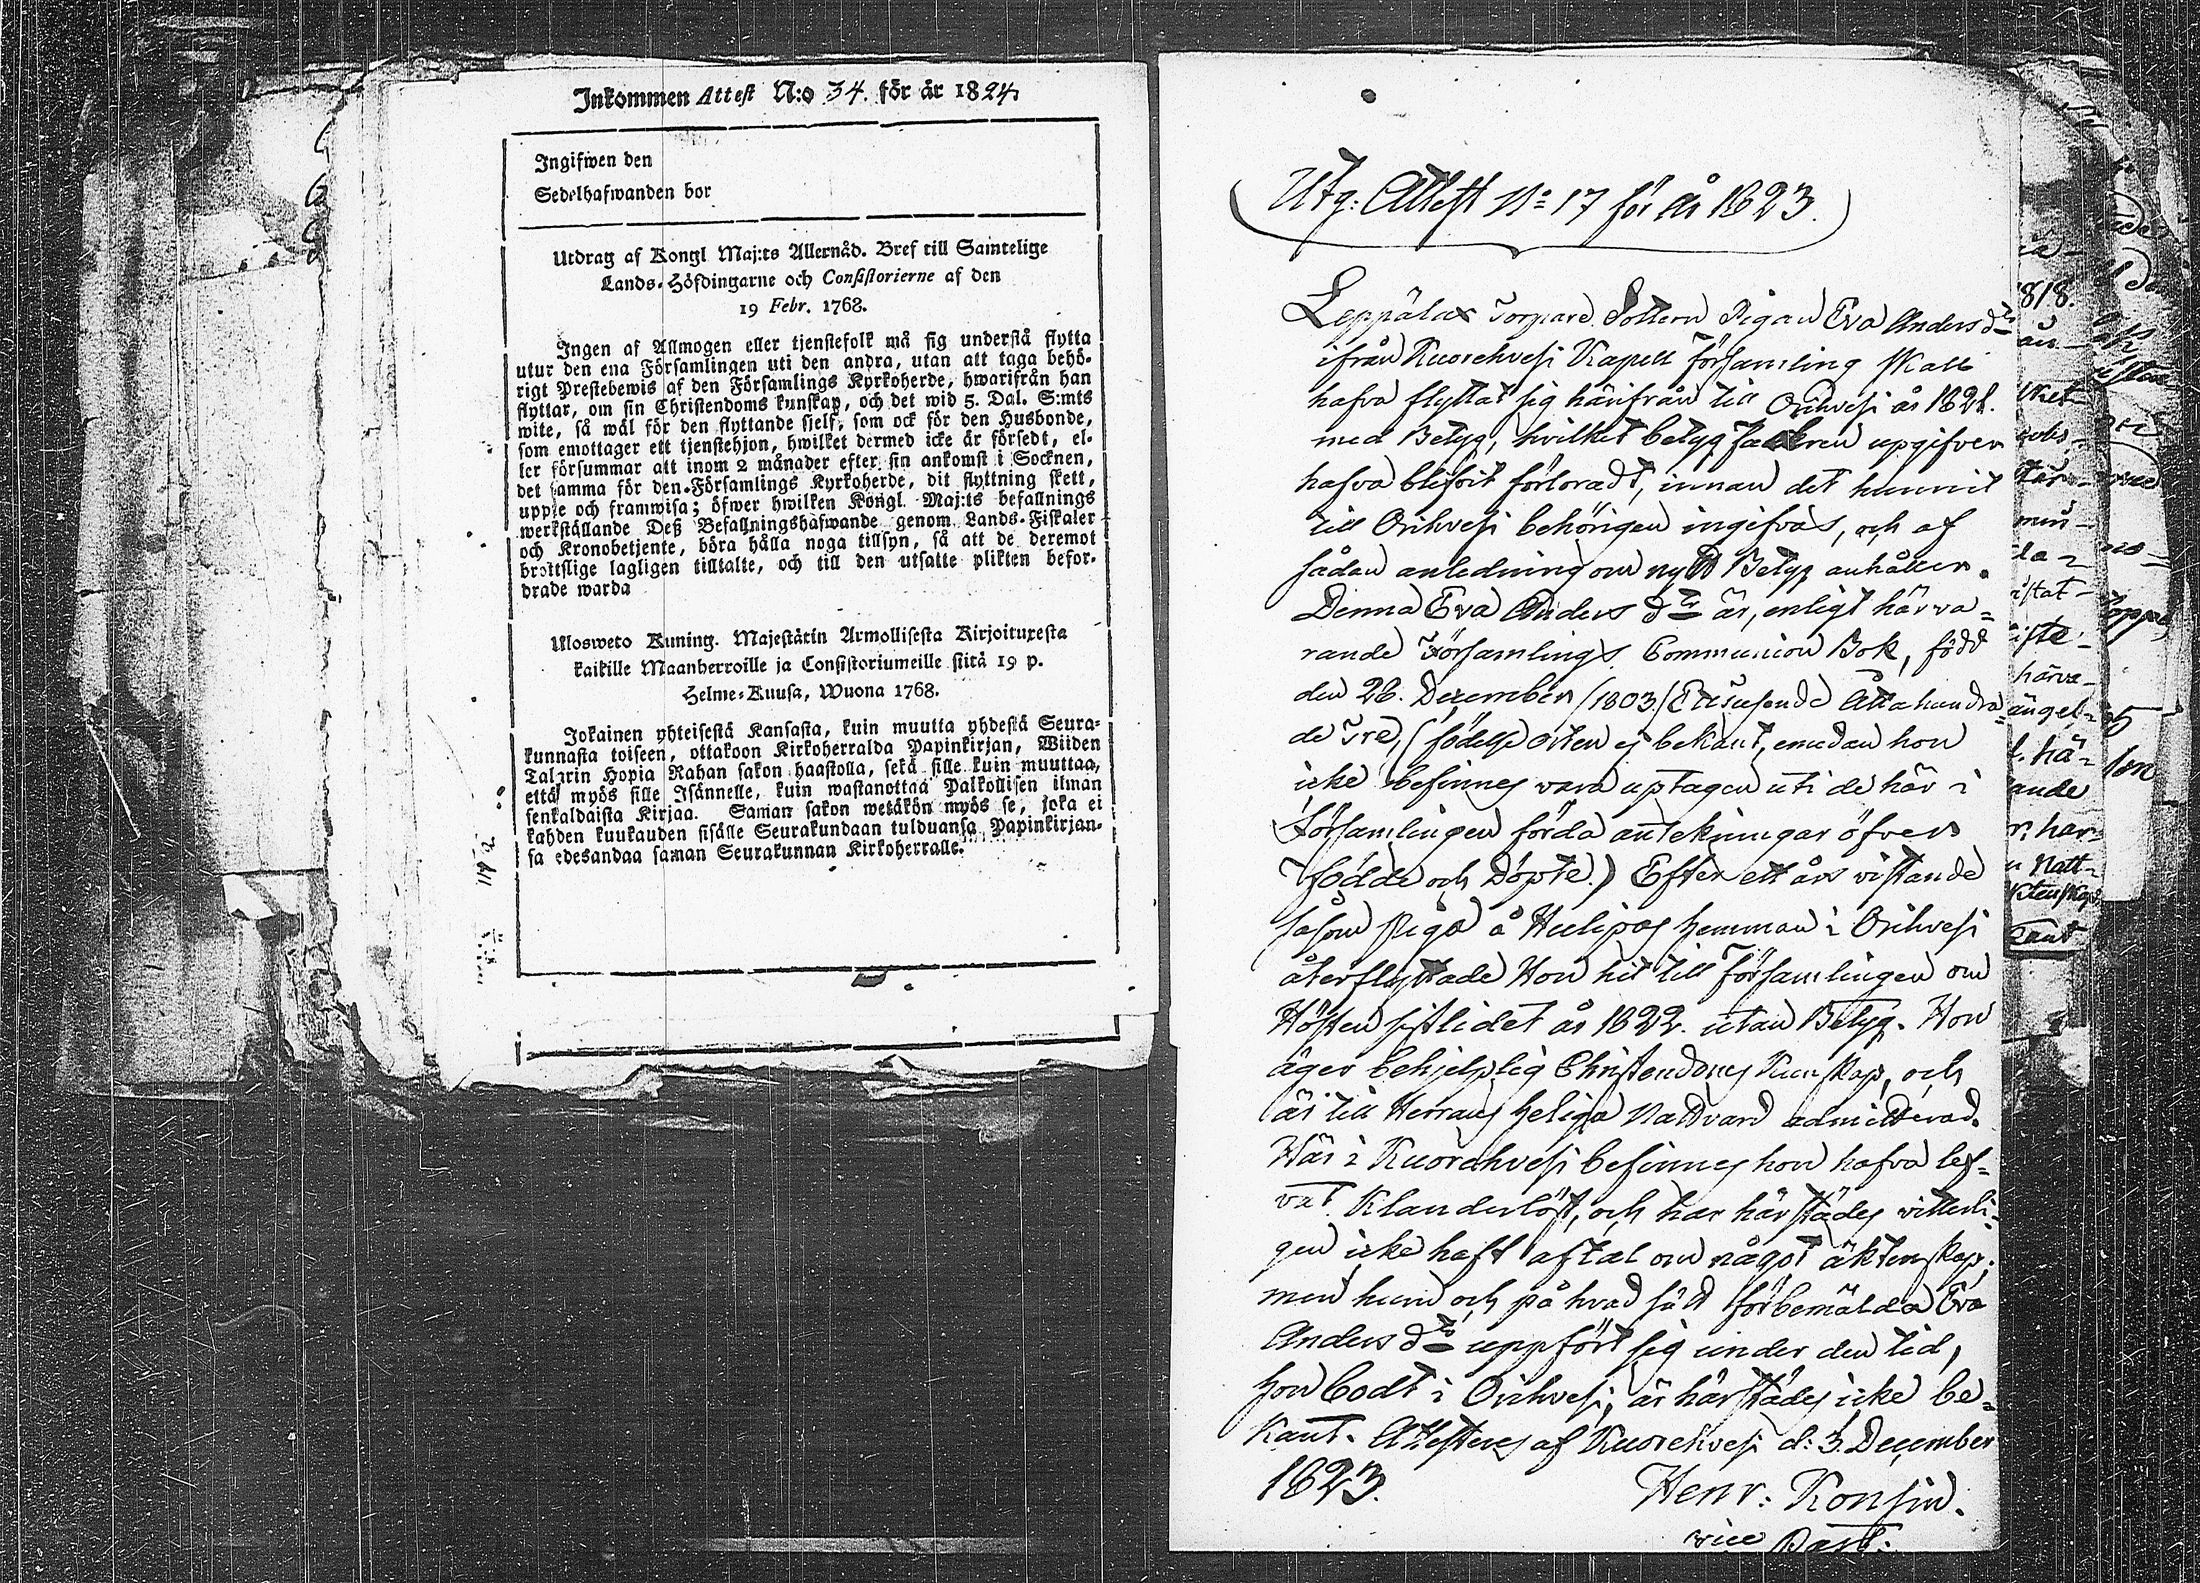 Inkommen Attest N:o 34. för år 1824.
Ingifwen den
Sedelhafwanden bor
Utdrag af Kongl Maj:ts Allernåd. Bref till Samtelige
Lands-Höfdingarne och Consistorierne af den
19 Febr. 1768.
Ingen af Allmogen eller tjenstefolk må sig understå flytta
utur den ena Församlingen uti den andra, utan att taga behö-
rigt Prestebewis af den Församlings Kyrkoherde, hwarifrån han
flyttar, om sin Christendoms kunskap, och det wid 5. Dal. S:mts
wite, så wäl för den flyttande sielf, som ock för den Husbonde,
som emottager ett tjenstehjon, hwilket dermed icke är försedt, el-
ler försummar att inom 2 månader efter sin ankomst i Socknen,
det samma för den Församlings Kyrkoherde, dit flyttning skett,
uppte och framwisa; öfwer hwilken Kongl Maj:ts befallnings
werkställande Deß Befallningshafwande genom Lands-Fiskaler
och Kronobetjente, böra hålla noga tillsyn, så att de deremot
brottslige lagligen tilltalte, och till den utsatte plikten befor-
drade warda
Ulosweto Kuning. Majestätin Armollisesta Kirjoituxesta
kaikille Maanherroille ja Consistoriumeille siitä 19 p.
Helme-Kuusa, Wuona 1768.
Jokainen yhteisestä Kansasta, kuin muutta yhdestä Seura-
kunnasta toiseen, ottakoon Kirkoherralda Papinkirjan, Wiiden
Talarin Hopia Rahan sakon haastolla, sekä sille kuin muuttaa,
että myös sille Isännelle, kuin wastanottaa Palkollisen ilman
senkaldaista Kirjaa. Saman sakon wetäkön myös se, joka ei
kahden kuukauden sisälle Seurakundaan tulduansa Papinkirjan-
sa edesandaa saman Seurakunnan Kirkoherralle.
Utg: Attest No 17 för år 1823.
Leppälax Torpare Dottern Pigan Eva Anders dr
ifrån Kuorehvesi Kapell Församling Skall
hafva flyttat sig härifrån till Orihvesi år 1821.
med Betyg, hvilket betyg upgifves
hafva blifvit förloradt, innan det hunnit
till Orihvesi behörigen ingifvas, och af
sådan anledning om nytt Betyg anhåller.
Denna Eva Anders dr är, enligt härva-
rande Församlings Communion Bok, född
den 26. December /1803/ Ettusende Åttahundra-
de Tre, (födelse orten ej bekant, emedan hon
icke befinnes vara uptagen uti de här i
Församlingen förda antekningar öfver
födde och Döpte.) Efter ett års vistande
såsom piga å Hulipas hemman i Orihvesi
återflyttade Hon hit till Församlingen om
Hösten sistlidet år 1822. utan Betyg. Hon
äger behjelplig Christendoms Kunskap, och
är till Herrans heliga Nattvard admitterad.
Här i Kuorehvesi befinnes hon hafva lef-
vat Klanderlöst, och har härstädes vitterli-
gen icke haft aftal om något äktenskap;
men huru och på hvad sätt förbemälda Eva
Anders dr uppfört sig under den tid,
hon bodt i Orihvesi, är härstädes icke be-
kant. Attesteras af Kuorehvesi d: 3 December
1823.
Henr: Konsin.
vice Past: